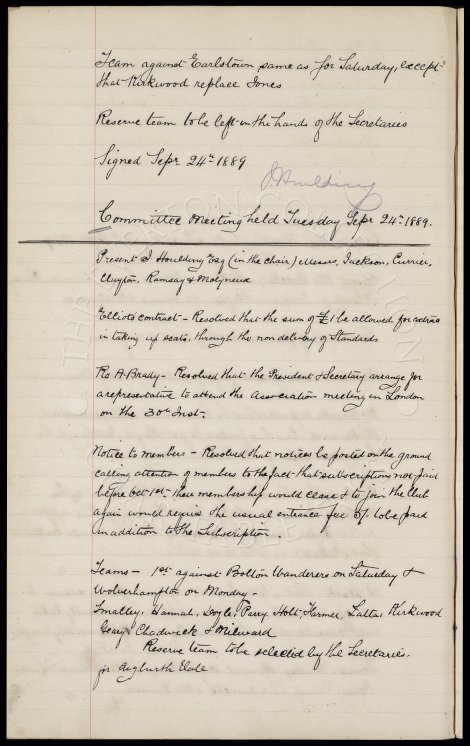 Team against Earlstown same as for Saturday, except
that Kirkwood replace Jones
Reserve team to be left in the hands of the Secretaries
Signed Sepr 24th 1889
J Houlding
Committee Meeting held Tuesday Sepr 24th 1889.
Present J Houlding Esq (in the chair) Messrs, Jackson, Currier,
Clayton, Ramsay & Molyneux
Elliots contract - Resolved that the sum of £1 be allowed for extras
in taking up seats, through the non delivery of Standards
Re A. Brady - Resolved that the President & Secretary arrange for
a representative to attend the Association meeting in London
on the 30th Inst.
Notice to Members - Resolved that notices be posted on the ground
calling attention of members to the fact that subscriptions not paid
before Oct 1st their membership would cease & to join the Club
again would require the usual entrance fee 5/- to be paid
in addition to the Subscription.
Teams - 1st against Bolton Wanderers on Saturday &
Wolverhampton on Monday -
Smalley, Hannah, Doyle, Parry, Holt Farmer, Latta, Kirkwood
Geary Chadwick & Milward
Reserve team to be selected by the Secretaries.
for Aigburth Vale